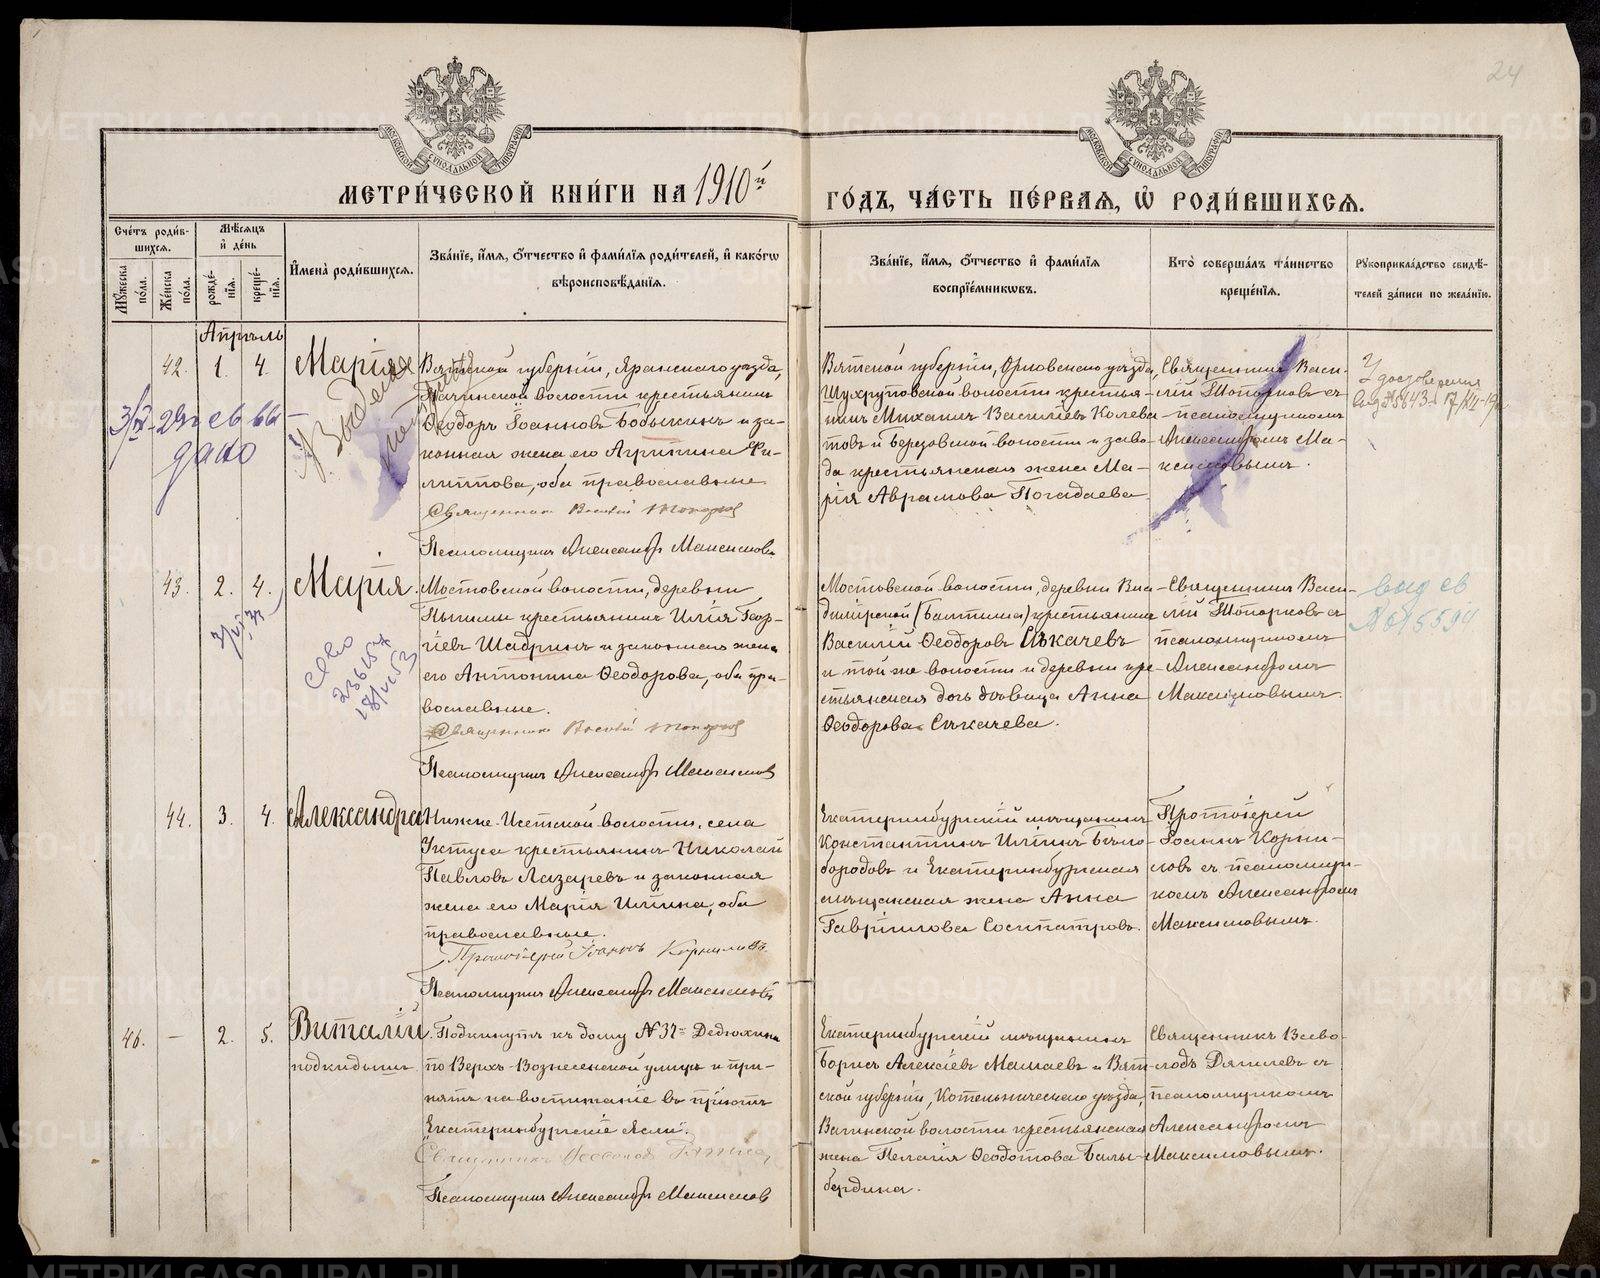 24
МЕТРИ́ЧЕСКОЙ КНИ́ГИ НА 1910й ГО́ДЪ, ЧА́СТЬ ПЕ́РВАѦ, Ѡ҆ РОДИ́ВШИХСѦ.
Сче́тъ роди́в-
шихсѧ.
Мꙋ́жеска по́ла.
Же́нска по́ла.
Мѣ́сѧцъ
и҆ де́нь
рожде́-
нїѧ.
креще́-
нїѧ.
И҆мена̀ роди́вшихсѧ.
Зва́нїе, и҆́мѧ, ѻ҆́тчество и҆ фами́лїѧ роди́телей, и҆ како́гѡ
вѣроисповѣ́данїѧ.
Зва́нїе, и҆́мѧ, ѻ҆́тчество и҆ фами́лїѧ
воспрїе́мникѡвъ.
Кто̀ соверша́лъ та́инство
креще́нїѧ.
Рꙋкоприкла́дство свидѣ́-
телей за́писи по жела́нїю.
Апрѣль
42. 1. 4. Марія
Вятской губерніи, Яранскаго уѣзда,
волости крестьянинъ
Ѳеодоръ Іоанновъ Бобыкинъ и за-
конная жена его Агрипина Фи-
липпова, оба православные
Священникъ Василій Топорков
Псаломщикъ Александръ Максимовъ
Вятской губерніи, Орловскаго уѣзда,
Шухруповской волости крестья-
нинъ Михаилъ Васильевъ Колева-
товъ и Березовской волости и заво-
да крестьянская жена Ма-
рія Аврамова Погадаева.
Священникъ Васи-
лій Топорковъ съ
псаломщикомъ
Александромъ Ма-
ксимовымъ.
дано
43. 2. 4. Марія.
Мостовской волости, деревни
крестьянинъ Илія Геор-
гіевъ Шабринъ и законная жена
его Антонина Ѳеодорова, оба пра-
вославные.
Священникъ Василій Топорков
Псаломщикъ Александръ Максимов
Мостовской волости, деревни Вла-
димірской (Балтыма) крестьянинъ
Василій Ѳеодоровъ Сѣкачевъ
и той же волости и деревни кре-
стьянская дочь дѣвица Анна
Ѳеодорова Сѣкачева.
Священникъ Васи-
лій Топорковъ съ
псаломщикомъ
Александромъ
Максимовымъ.
выд св
№ 15594
44. 3. 4. Александра
Нижне-Исетской волости, села
Уктуса крестьянинъ Николай
Павловъ Лазаревъ и законная
жена его Марія Ильина, оба
православные.
Протоіерей Іоаннъ Корниловъ.
Псаломщикъ Александръ Максимовъ
Екатеринбургскій мѣщанинъ
Константинъ Ильинъ Бѣло-
бородовъ и Екатеринбургская
мѣщанская жена Анна
Гавріилова Соспатрова.
Протоіерей
Іоаннъ Корни-
ловъ съ псаломщи-
комъ Александромъ
Максимовымъ.
46. — 2. 5. Виталій
подкидышъ
Подкинутъ къ дому № 37 Дедюхина
по Верхъ-Вознесенской улицѣ и при-
нятъ на воспитаніе въ пріютъ
"Екатеринбургскіе Ясли".
Священникъ Всеволод
Псаломщикъ Александръ Максимов
Екатеринбургскій мѣщанинъ
Борисъ Алексіевъ Мамаевъ и Вят-
ской губерніи, Котельническаго уѣзда,
Вагинской волости крестьянская
жена Пелагія Ѳеодотова Балы-
бердина.
Священникъ Всево-
лодъ Дягилевъ съ
псаломщикомъ
Александромъ
Максимовымъ.